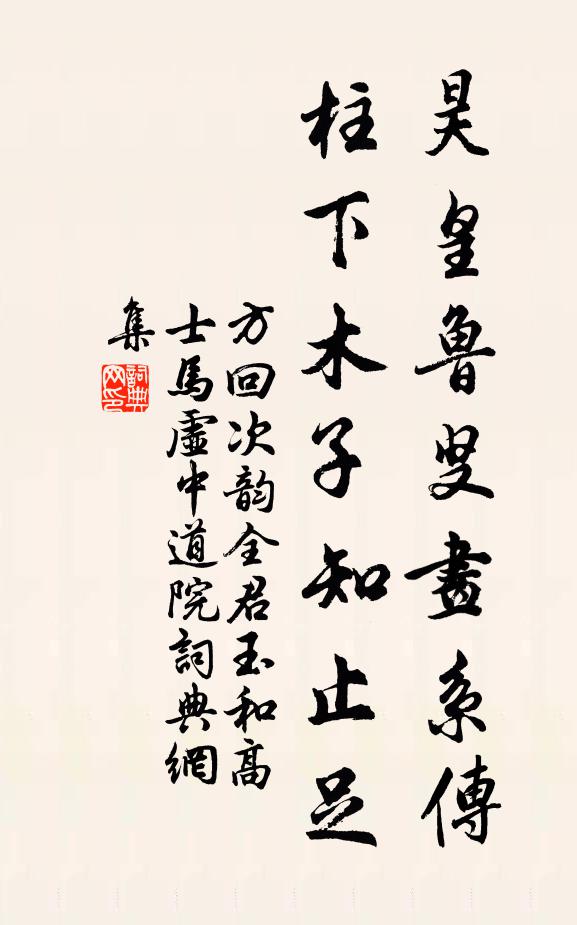 昊皇魯叟畫系傳
柱下木子知止足
方回次韵全君玉和高
士馬虛中道院詞典網
集
詞典網印